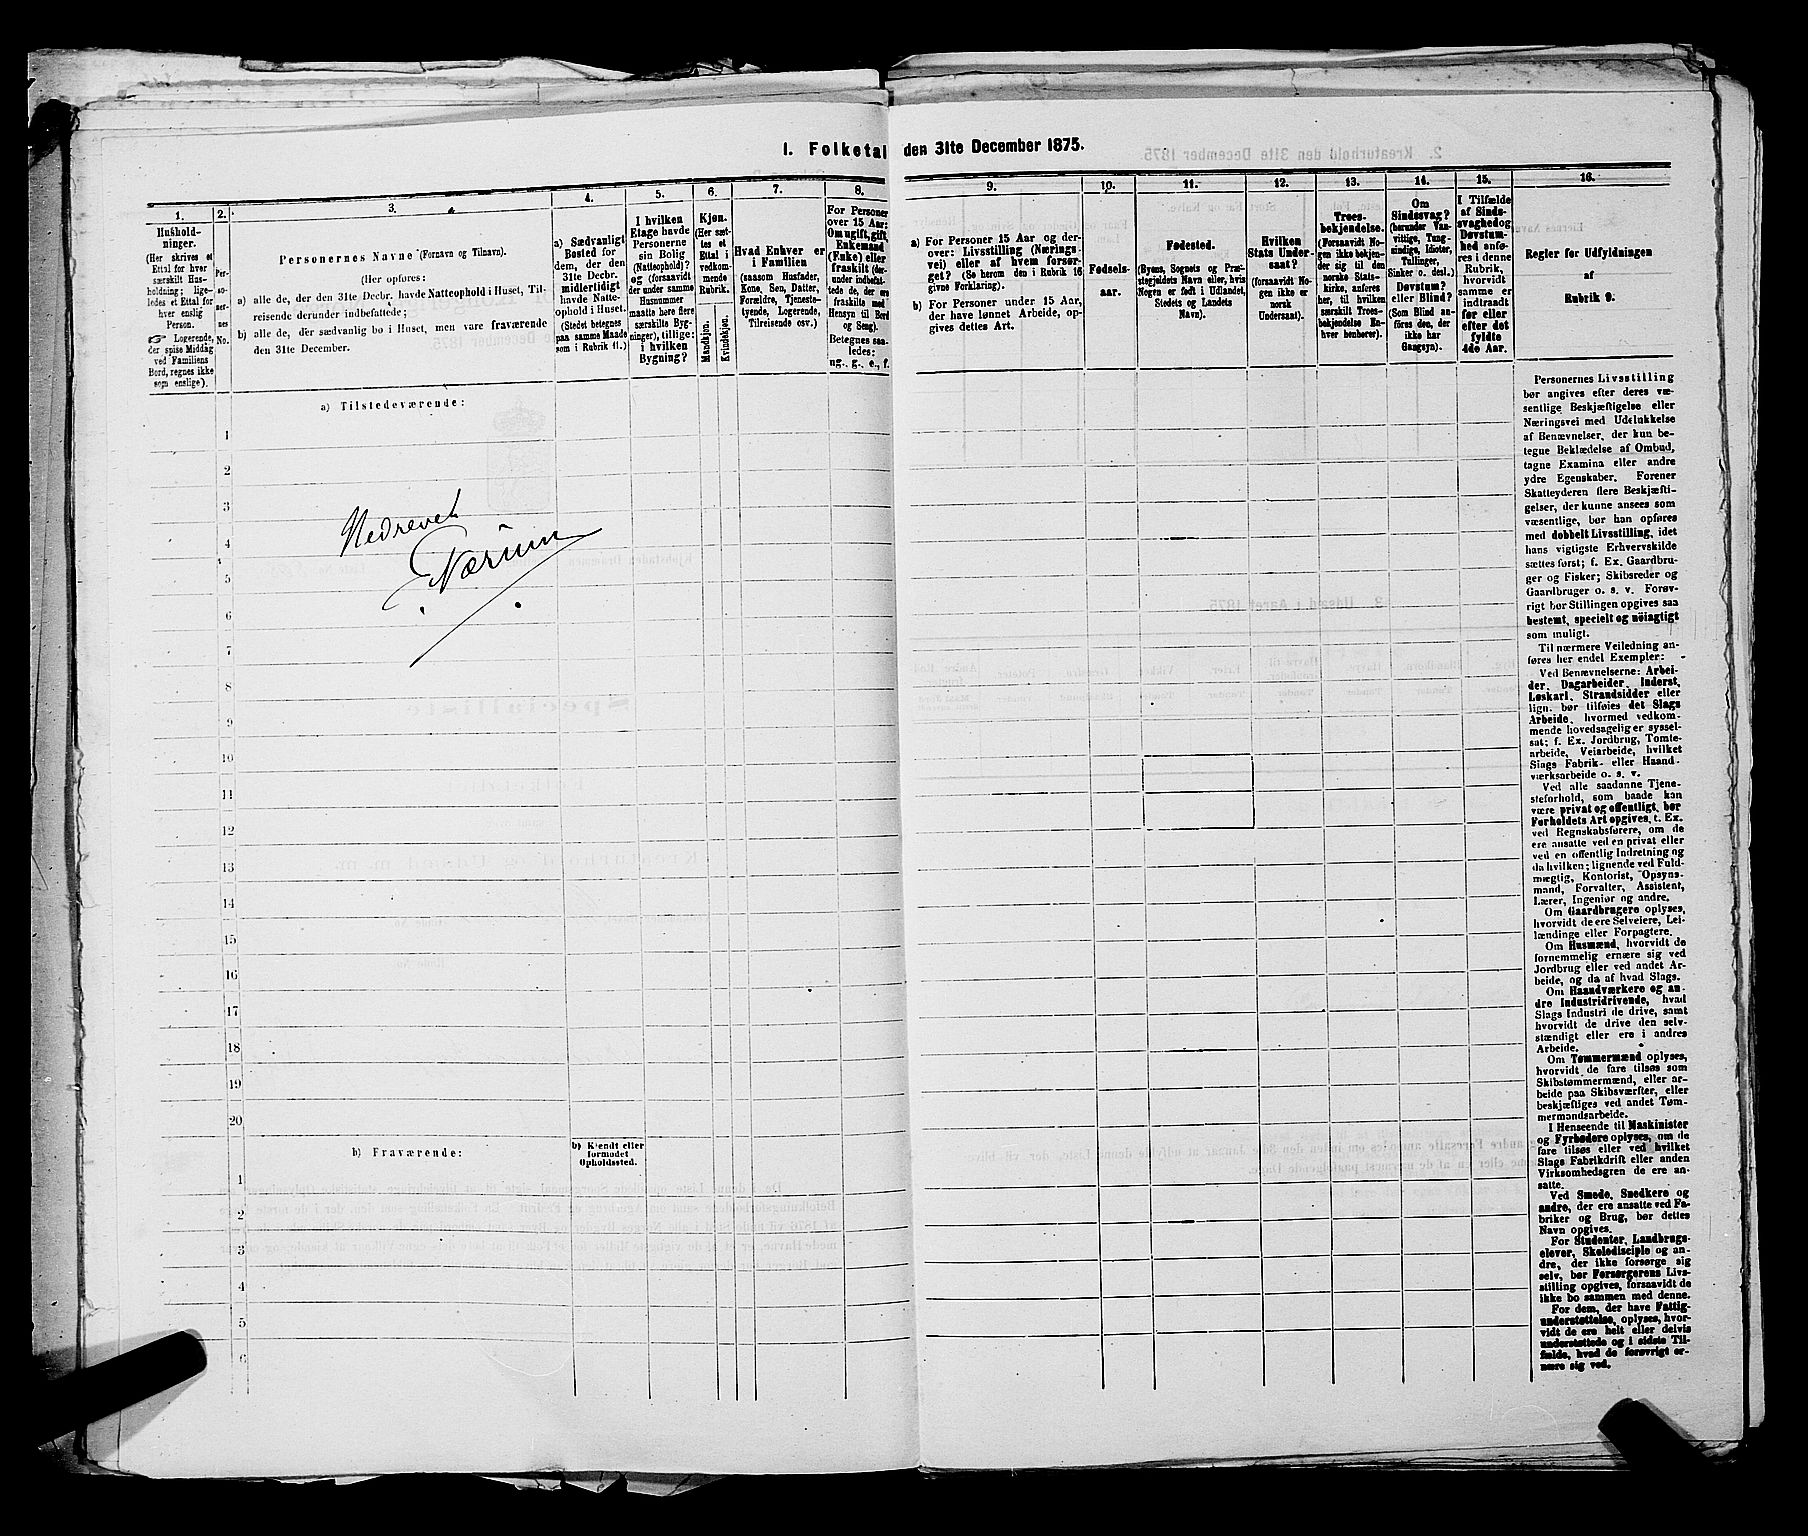 1. Folketal den 31te December 1875.
1.
Hushold-
ninger.
(Her skrives et
Ettal for hver
særskilt Hus-
holdning; lige-
ledes et Ettal for
hver enslig
Person.
☞ Logerende,
der spise Middag
ved Familiens
Bord, regnes ikke
som enslige).
2.
Per-
so-
ner-
nes
No.
3.
Personernes Navne (Fornavn og Tilnavn).
(Her opføres:
a) alle de, der den 31te Decbr. havde Natteophold i Huset, Til-
reisende derunder indbefattede;
b) alle de, der sædvanlig bo i Huset, men vare fraværende
den 31te December.
4.
a) Sædvanligt
Bosted for
dem, der den
31te Decbr.
midlertidigt
havde Natte-
ophold i Huset.
(Stedet betegnes
paa samme Maade
som i Rubrik 11.)
5.
I hvilken
Etage havde
Personerne
sin Bolig
(Natteophold)?
og (forsaavidt
der under samme
Husnummer
maatte høre flere
særskilte Byg-
ninger), tillige:
i hvilken
Bygning?
6.
Kjøn.
(Her sæt-
tes et
Ettal i
vedkom-
mende
Rubrik.
Mandkjøn.
Kvindekjøn.
7.
Hvad Enhver er
i Familien
(saasom Husfader,
Kone, Søn, Datter,
Forældre, Tjeneste-
tyende, Logerende,
Tilreisende osv.)
8.
For Personer
over 15 Aar:
Om ugift, gift
Enkemand
(Enke) eller
fraskilt (der-
under indbefat-
tede de, der ere
fraskilte med
Hensyn til Bord
og Seng).
Betegnes saa-
ledes:
ug., g., e., f.
9.
a) For Personer 15 Aar og der-
over: Livsstilling (Nærings
vei) eller af hvem forsør-
get? (Se herom den i Rubrik 16
givne Forklaring).
b) For Personer under 15 Aar,
der have lønnet Arbeide, op-
gives dettes Art.
10.
Fødsels-
aar.
11.
Fødested.
(Byens, Sognets og Præ-
stegjeldets Navn eller, hvis
Nogen er født i Udlandet,
Stedets og Landets
Navn).
12.
Hvilken
Stats Under-
saat?
(forsaavidt No-
gen ikke er
norsk
Undersaat).
13.
Troes-
bekjendelse.
(Forsaavidt No-
gen ikke bekjen-
der sig til den
norske Stats-
kirke, anføres
her, til hvilken
særskilt Troes-
bekjendelse En-
hver henhører).
14.
Om
Sindssvag?
(herunder Van-
vittige, Tung-
sindige, Idioter,
Tullinger,
Sinker o. desl.)
Døvstum?
eller Blind?
(Som Blind an-
føres den, der
ikke har
Gangsyn).
15.
I Tilfælde
af Sinds-
svaghed og
Døvstum-
hed anfø-
res i denne
Rubrik,
hvorvidt
samme er
indtraadt
før eller
efter det
fyldte
4de Aar.
16.
Regler for Udfyldningen
af
Rubrik 9.
a) Tilstedeværende:
1
2
3
4
5
6
7
8
9
10
11
12
13
14
15
16
17
18
19
20
Nedrevet
Nærum
b) Fraværende:
b) Kjendt eller
formodet
Opholdssted.
1
2
3
4
5
6
Personernes Livsstilling
bør angives efter deres væ-
sentlige Beskjæftigelse eller
Næringsvei med Udelukkelse
af Benævnelser, der kun be-
tegne Beklædelse af Ombud,
tagne Examina eller andre
ydre Egenskaber. Forener
Skatteyderen flere Beskjæfti-
gelser, der kunne ansees som
væsentlige, bør han opføres
med dobbelt Livsstilling, idet
hans vigtigste Erhvervskilde
sættes først; f. Ex. Gaardbru-
ger og Fisker; Skibsreder og
Gaardbruger o. s. v. Forøv-
rigt bør Stillingen opgives saa
bestemt, specielt og nöiagtigt
som muligt.
Til nærmere Veiledning an-
føres her endel Exempler:
Ved Benævnelserne: Arbei-
der, Dagarbeider, Inderst,
Løskarl, Strandsidder eller
lign. bør tilføies det Slags
Arbeide, hvormed vedkom-
mende hovedsagelig er syssel-
sat; f. Ex. Jordbrug, Tomte-
arbeide, Veiarbeide, hvilket
Slags Fabrik- eller Haand-
værksarbeide o. s. v.
Ved alle saadanne Tjene-
steforhold, som baade kan
være privat og offentligt, bør
Forholdets Art opgives, t. Ex.
ved Regnskabsførere, om de
ere ansatte ved en privat eller
ved en offentlig Indretning og
da hvilken; lignende ved Fuld-
mægtig, Kontorist, Opsyns-
mand, Forvalter, Assistent,
Lærer, Ingeniør og andre.
Om Gaardbrugere oplyses,
hvorvidt de ere Selveiere, Lei-
lændinge eller Forpagtere.
Om Husmænd, hvorvidt de
fornemmelig ernære sig ved
Jordbrug eller ved andet Ar-
beide, og da af hvad Slags.
Om Haandværkere og an-
dre Industridrivende, hvad
Slags Industri de drive, samt
hvorvidt de drive den selv-
stændigt eller ere i andres
Arbeide.
Om Tømmermænd oplyses,
hvorvidt de fare tilsøs som
Skibstømmermænd, eller ar-
beide paa Skibsværfter, eller
beskjæftiges ved andet Tøm-
mermandsarbeide.
I Henseende til Maskinister
og Fyrbødere oplyses, om de
fare tilsøs eller ved hvilket
Slags Fabrikdrift eller anden
Virksomhedsgren de ere an-
satte.
Ved Smede, Snedkere og
andre, der ere ansatte ved Fa-
briker og Brug, bør dettes
Navn opgives.
For Studenter, Landbrugs-
elever, Skoledisciple og an-
dre, der ikke forsørge sig
selv, bør Forsørgerens Livs-
stilling opgives, forsaavidt de
ikke bo sammen med denne.
For dem, der have Fattig-
understøttelse, oplyses, hvor-
vidt de ere helt eller delvis
understøttede og i sidste Til-
fælde, hvad de forøvrigt er-
nære sig ved.